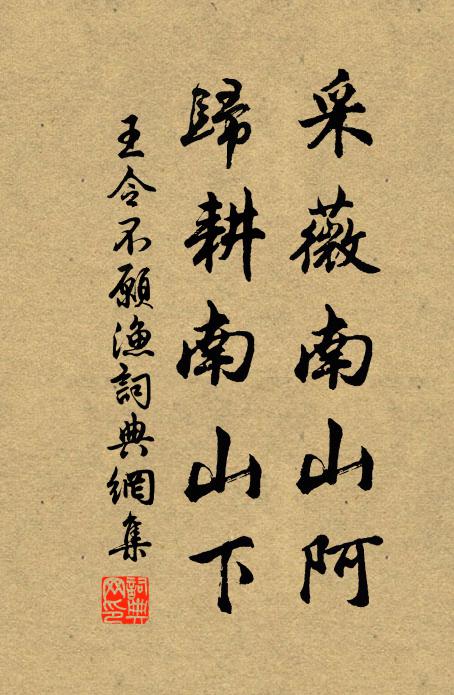 采薇南山阿
歸耕南山下
王令不願漁詞典網集
詞典網印